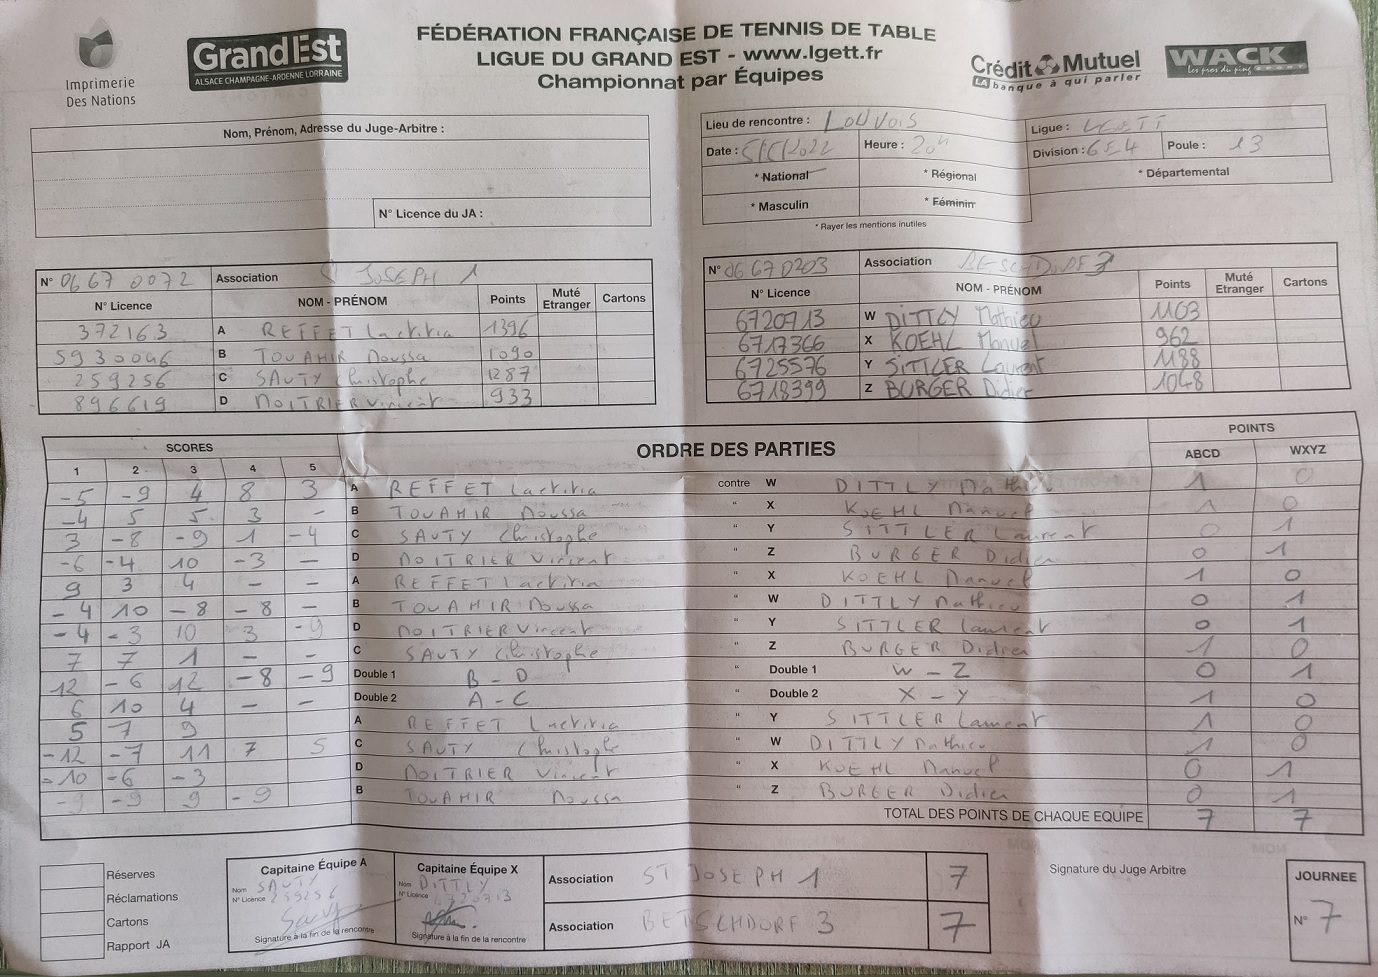 Imprimerie
Des Nations
GrandEst
ALSACE CHAMPAGNE-ARDENNE LORRAINE
FÉDÉRATION FRANÇAISE DE TENNIS DE TABLE
LIGUE DU GRAND EST - www.lgett.fr
Championnat par Équipes
Crédit Mutuel
LA banque à qui parler
WACK
les pros du ping
Nom, Prénom, Adresse du Juge-Arbitre :
N° Licence du JA :
Lieu de rencontre : LOUVOIS
Ligue : LGETT
Date : 2022 Heure : 20h
Division : GE4 Poule : 13
* National * Régional * Départemental
* Masculin * Féminin
* Rayer les mentions inutiles
N° 06 67 0072 Association St JOSEPH 1
N° Licence NOM - PRÉNOM Points Muté Etranger Cartons
372163 A REFFET Laetitia 1396
5930046 B TOUAHIR Moussa 1090
259256 C SAUTY Christophe 1287
896619 D NOITRIER Vincent 933
N° 06 67 0203 Association BETSCHDORF 3
N° Licence NOM - PRÉNOM Points Muté Etranger Cartons
6720713 W DITTLY Mathieu 1163
6717366 X KOEHL Manuel 962
6725576 Y SITTLER Laurent 1188
6718399 Z BURGER Didier 1048
SCORES ORDRE DES PARTIES POINTS
1 2 3 4 5 ABCD WXYZ
-5 -9 4 8 3 A REFFET Laetitia contre W DITTLY Mathieu 1 0
-4 5 5 3 - B TOUAHIR Moussa " X KOEHL Manuel 1 0
3 -8 -9 1 -4 C SAUTY Christophe " Y SITTLER Laurent 0 1
-6 -4 10 -3 - D NOITRIER Vincent " Z BURGER Didier 0 1
9 3 4 - - A REFFET Laetitia " X KOEHL Manuel 1 0
-4 10 -8 -8 - B TOUAHIR Moussa " W DITTLY Mathieu 0 1
-4 -3 10 3 -9 D NOITRIER Vincent " Y SITTLER Laurent 0 1
7 7 1 - - C SAUTY Christophe " Z BURGER Didier 1 0
12 -6 12 -8 -9 Double 1 B-D " Double 1 W-Z 0 1
6 10 4 - - Double 2 A-C " Double 2 X-Y 1 0
5 7 9 A REFFET Laetitia " Y SITTLER Laurent 1 0
-12 -7 11 7 5 C SAUTY Christophe " W DITTLY Mathieu 1 0
-10 -6 -3 D NOITRIER Vincent " X KOEHL Manuel 0 1
-9 -9 9 -9 B TOUAHIR Moussa " Z BURGER Didier 0 1
TOTAL DES POINTS DE CHAQUE EQUIPE 7 7
Réserves
Réclamations
Cartons
Rapport JA
Capitaine Équipe A
Nom SAUTY
N° Licence 259256
Signature à la fin de la rencontre
Capitaine Équipe X
Nom DITTLY
N° Licence 6720713
Signature à la fin de la rencontre
Association ST JOSEPH 1 7
Association BETSCHDORF 3 7
Signature du Juge Arbitre
JOURNEE
N° 7